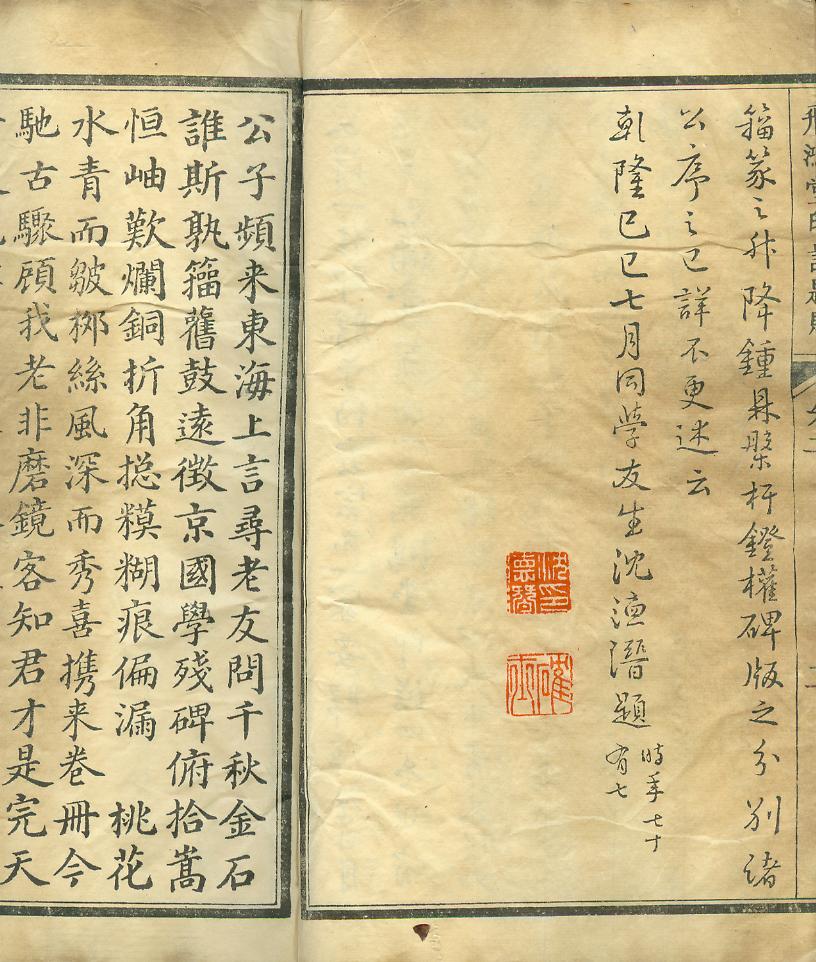 飛鴻堂印譜
二
籀篆之升降鍾鼎槃杅鐙權碑版之分別諸
公序之已詳不更述云
乾隆己巳七月同學友生沈德潛題
時年七十
有七
沈印德潛
確士
公子頻来東海上言尋老友問千秋金石
誰斯孰籀舊鼓遠徵京國學殘碑俯拾嵩
恒岫歎爛銅折角揔糢糊痕偏漏　桃花
水青而皺桞絲風深而秀喜携来卷冊今
馳古驟顧我老非磨鏡客知君才是完天